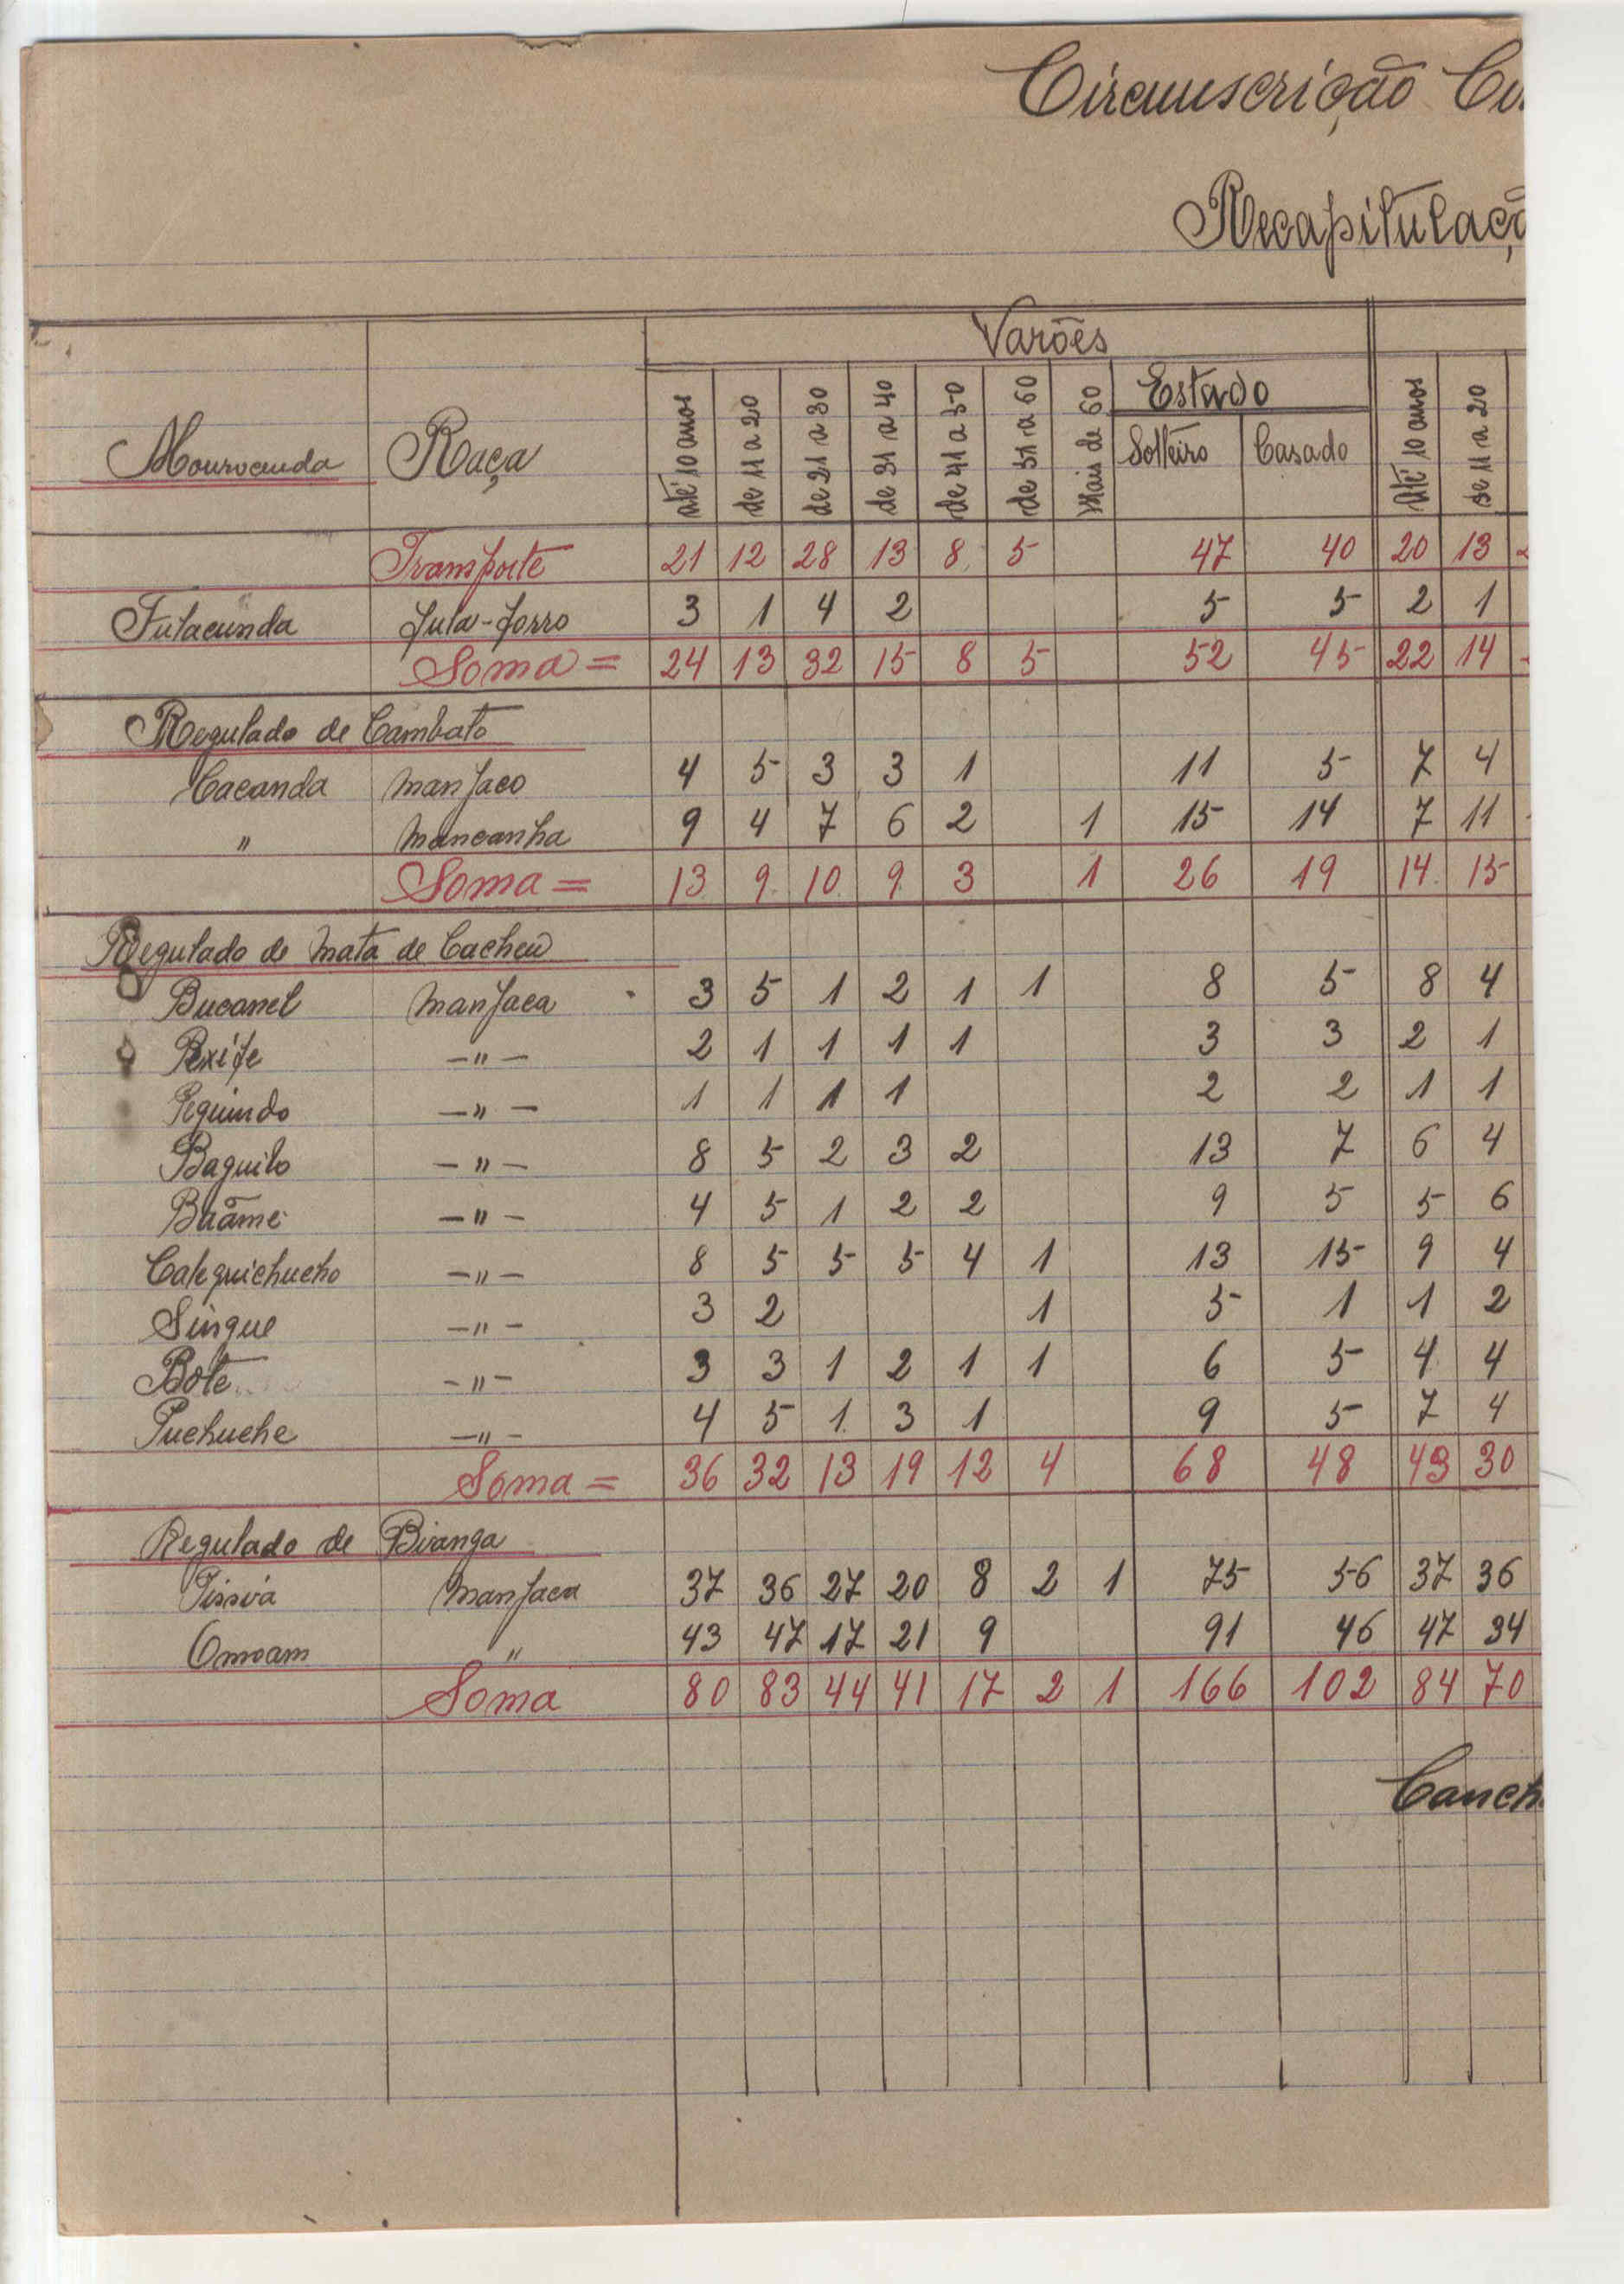 Circunscrição
Recapitulaç
Varões
Mourocunda Raça até 10 anos de 11 a 20 de 21 a 30 de 31 a 40 de 41 a 50 de 51 a 60 Mais de 60 Estado Solteiro Casado Até 10 anos de 11 a 20
Transporte 21 12 28 13 8 5 47 40 20 13
Fulacunda fula-forro 3 1 4 2 5 5 2 1
Soma = 24 13 32 15 8 5 52 45 22 14
Regulado de Cambato
Cacanda manjaco 4 5 3 3 1 11 5 7 4
" mancanha 9 4 7 6 2 1 15 14 7 11
Soma = 13 9 10 9 3 1 26 19 14 15
Regulado de Mata de Cacheu
Bucanel manjaca 3 5 1 2 1 1 8 5 8 4
Pexife -"- 2 1 1 1 1 3 3 2 1
Peguindo -"- 1 1 1 1 2 2 1 1
Baguilo -"- 8 5 2 3 2 13 7 6 4
Buãme -"- 4 5 1 2 2 9 5 5 6
Calequichucho -"- 8 5 5 5 4 1 13 15 9 4
Singue -"- 3 2 1 5 1 1 2
Bote -"- 3 3 1 2 1 1 6 5 4 4
Puchuche -"- 4 5 1 3 1 9 5 7 4
Soma = 36 32 13 19 12 4 68 48 43 30
Regulado de Bianga
Pissiva manjaca 37 36 27 20 8 2 1 75 56 37 36
Omoam " 43 47 17 21 9 91 46 47 34
Soma 80 83 44 41 17 2 1 166 102 84 70
Canch